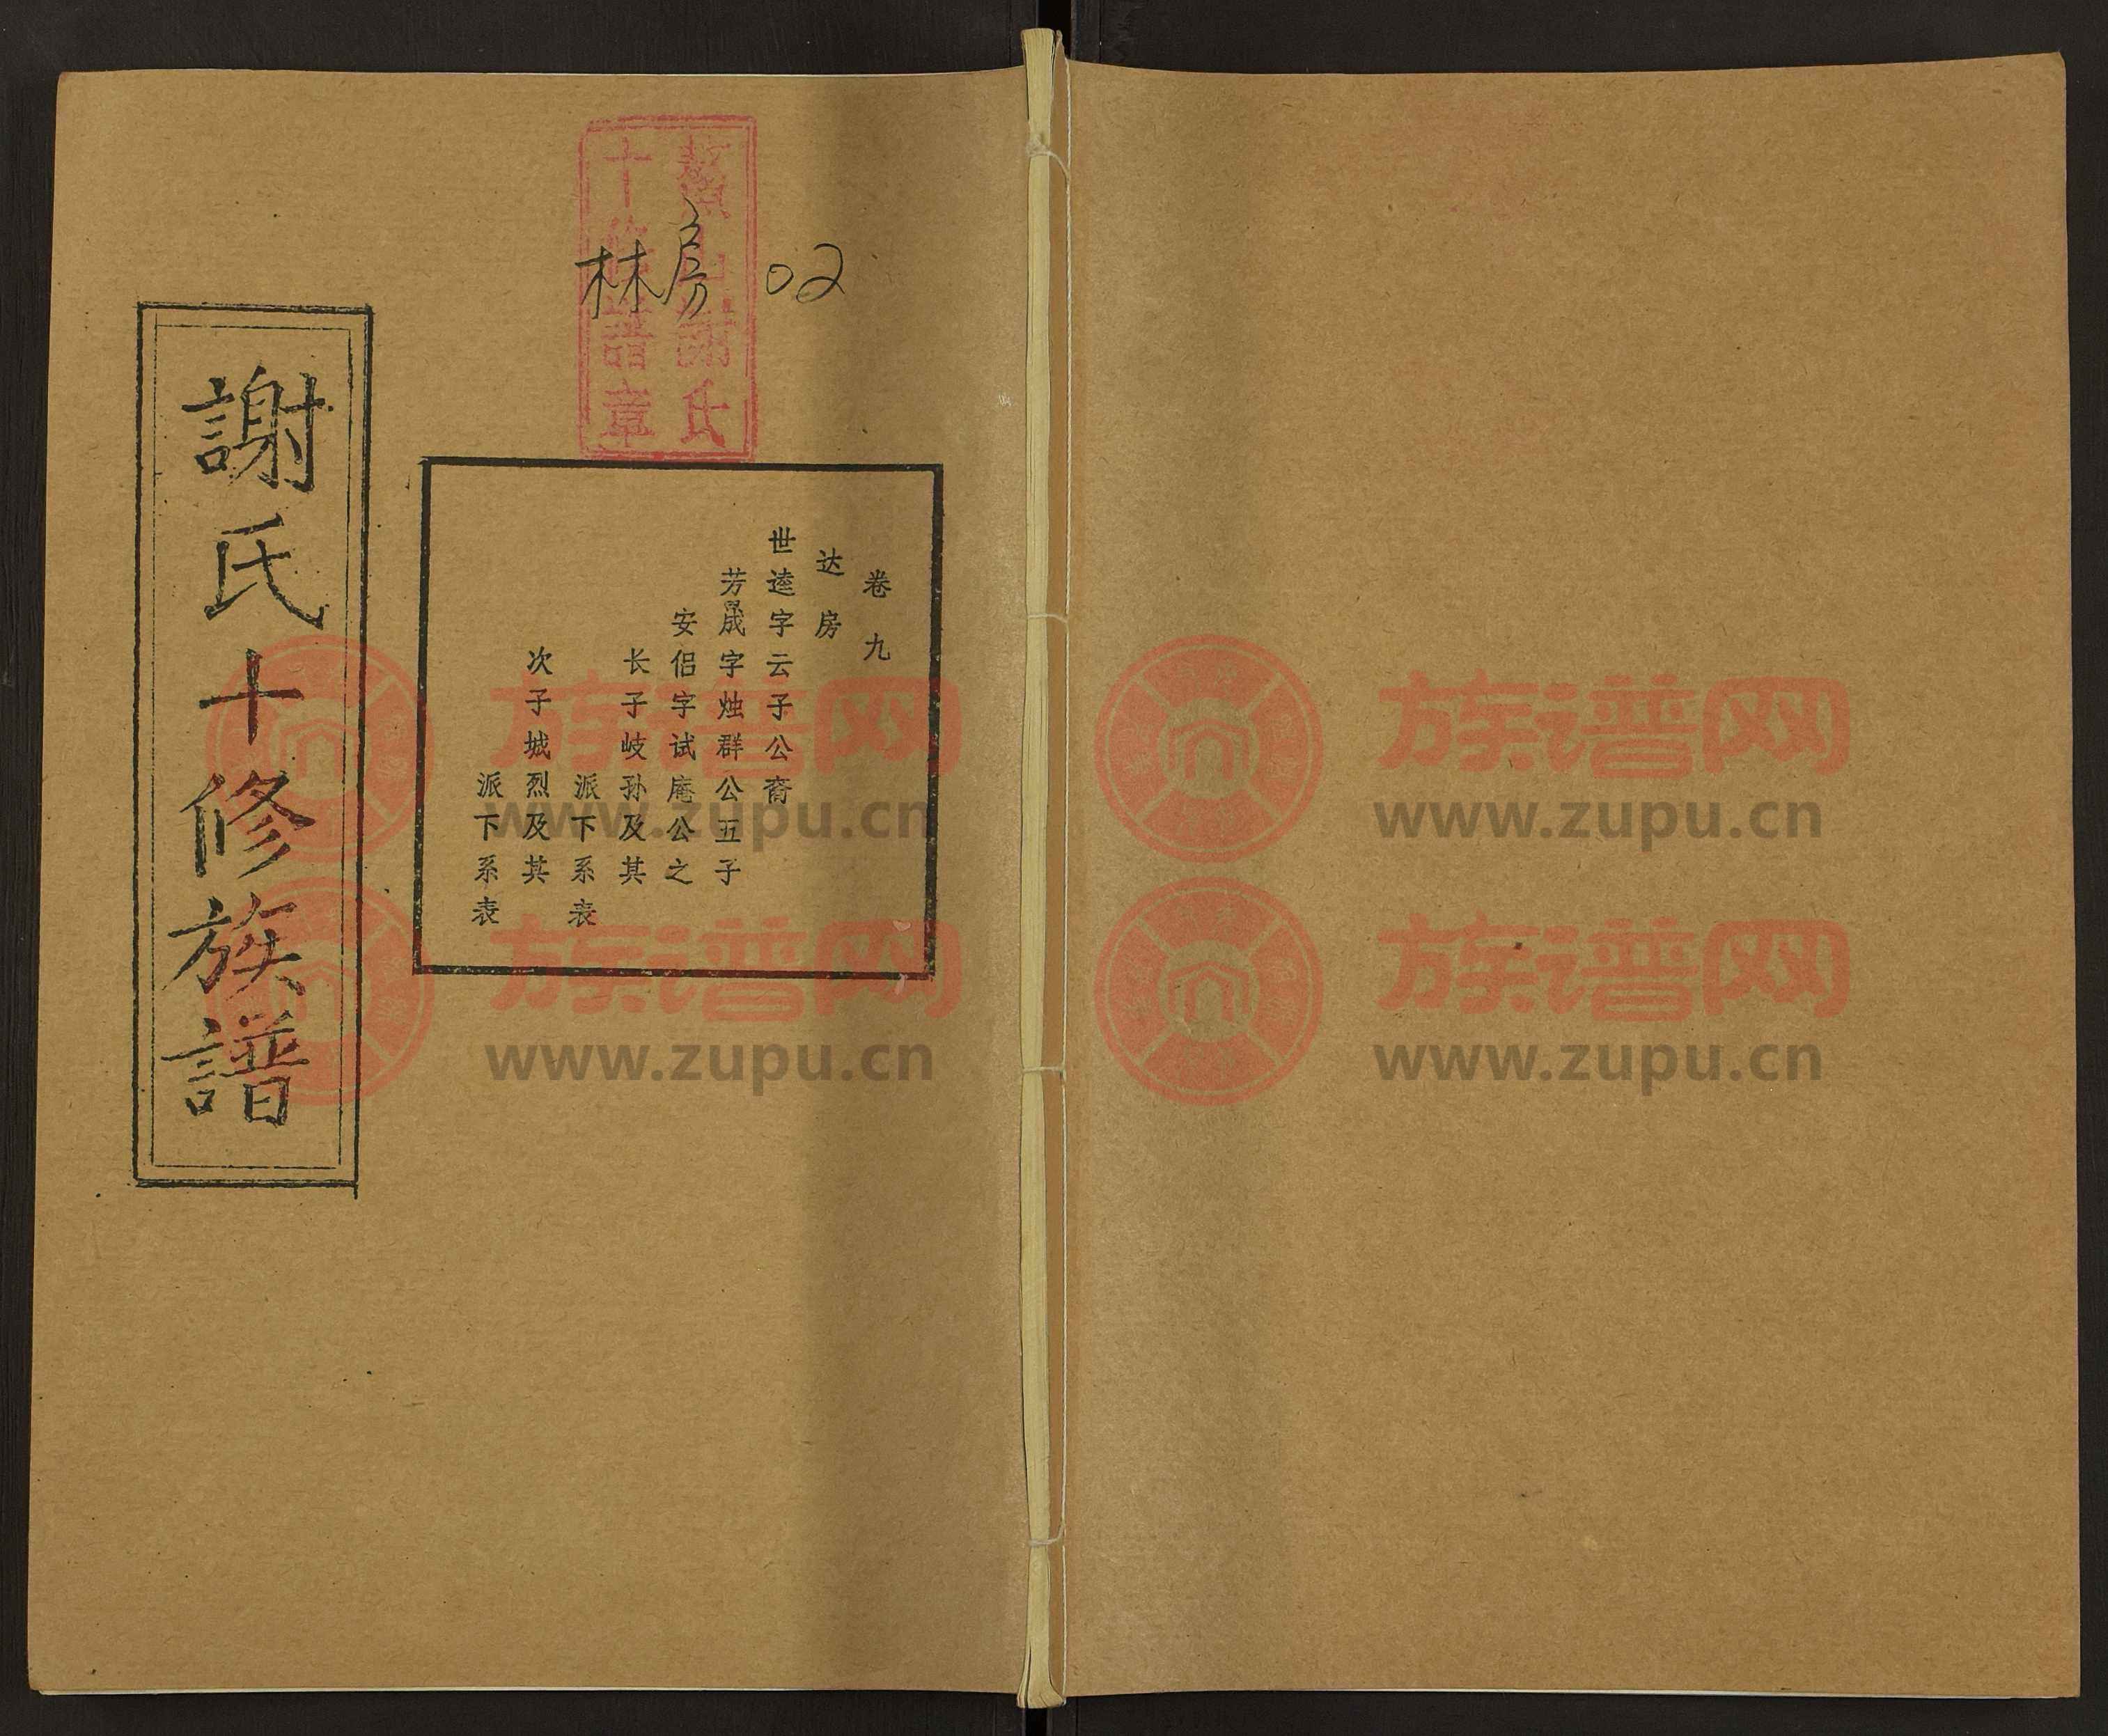 謝氏十修族譜
林房 02
謝氏
十修譜章
卷九
达房
世逵字云子公裔
芳晟字烛群公五子
安侣字试庵公之
长子岐孙及其
派下系表
次子城烈及其
派下系表
族谱网
www.zupu.cn
族谱网
www.zupu.cn
族谱网
www.zupu.cn
族谱网
www.zupu.cn